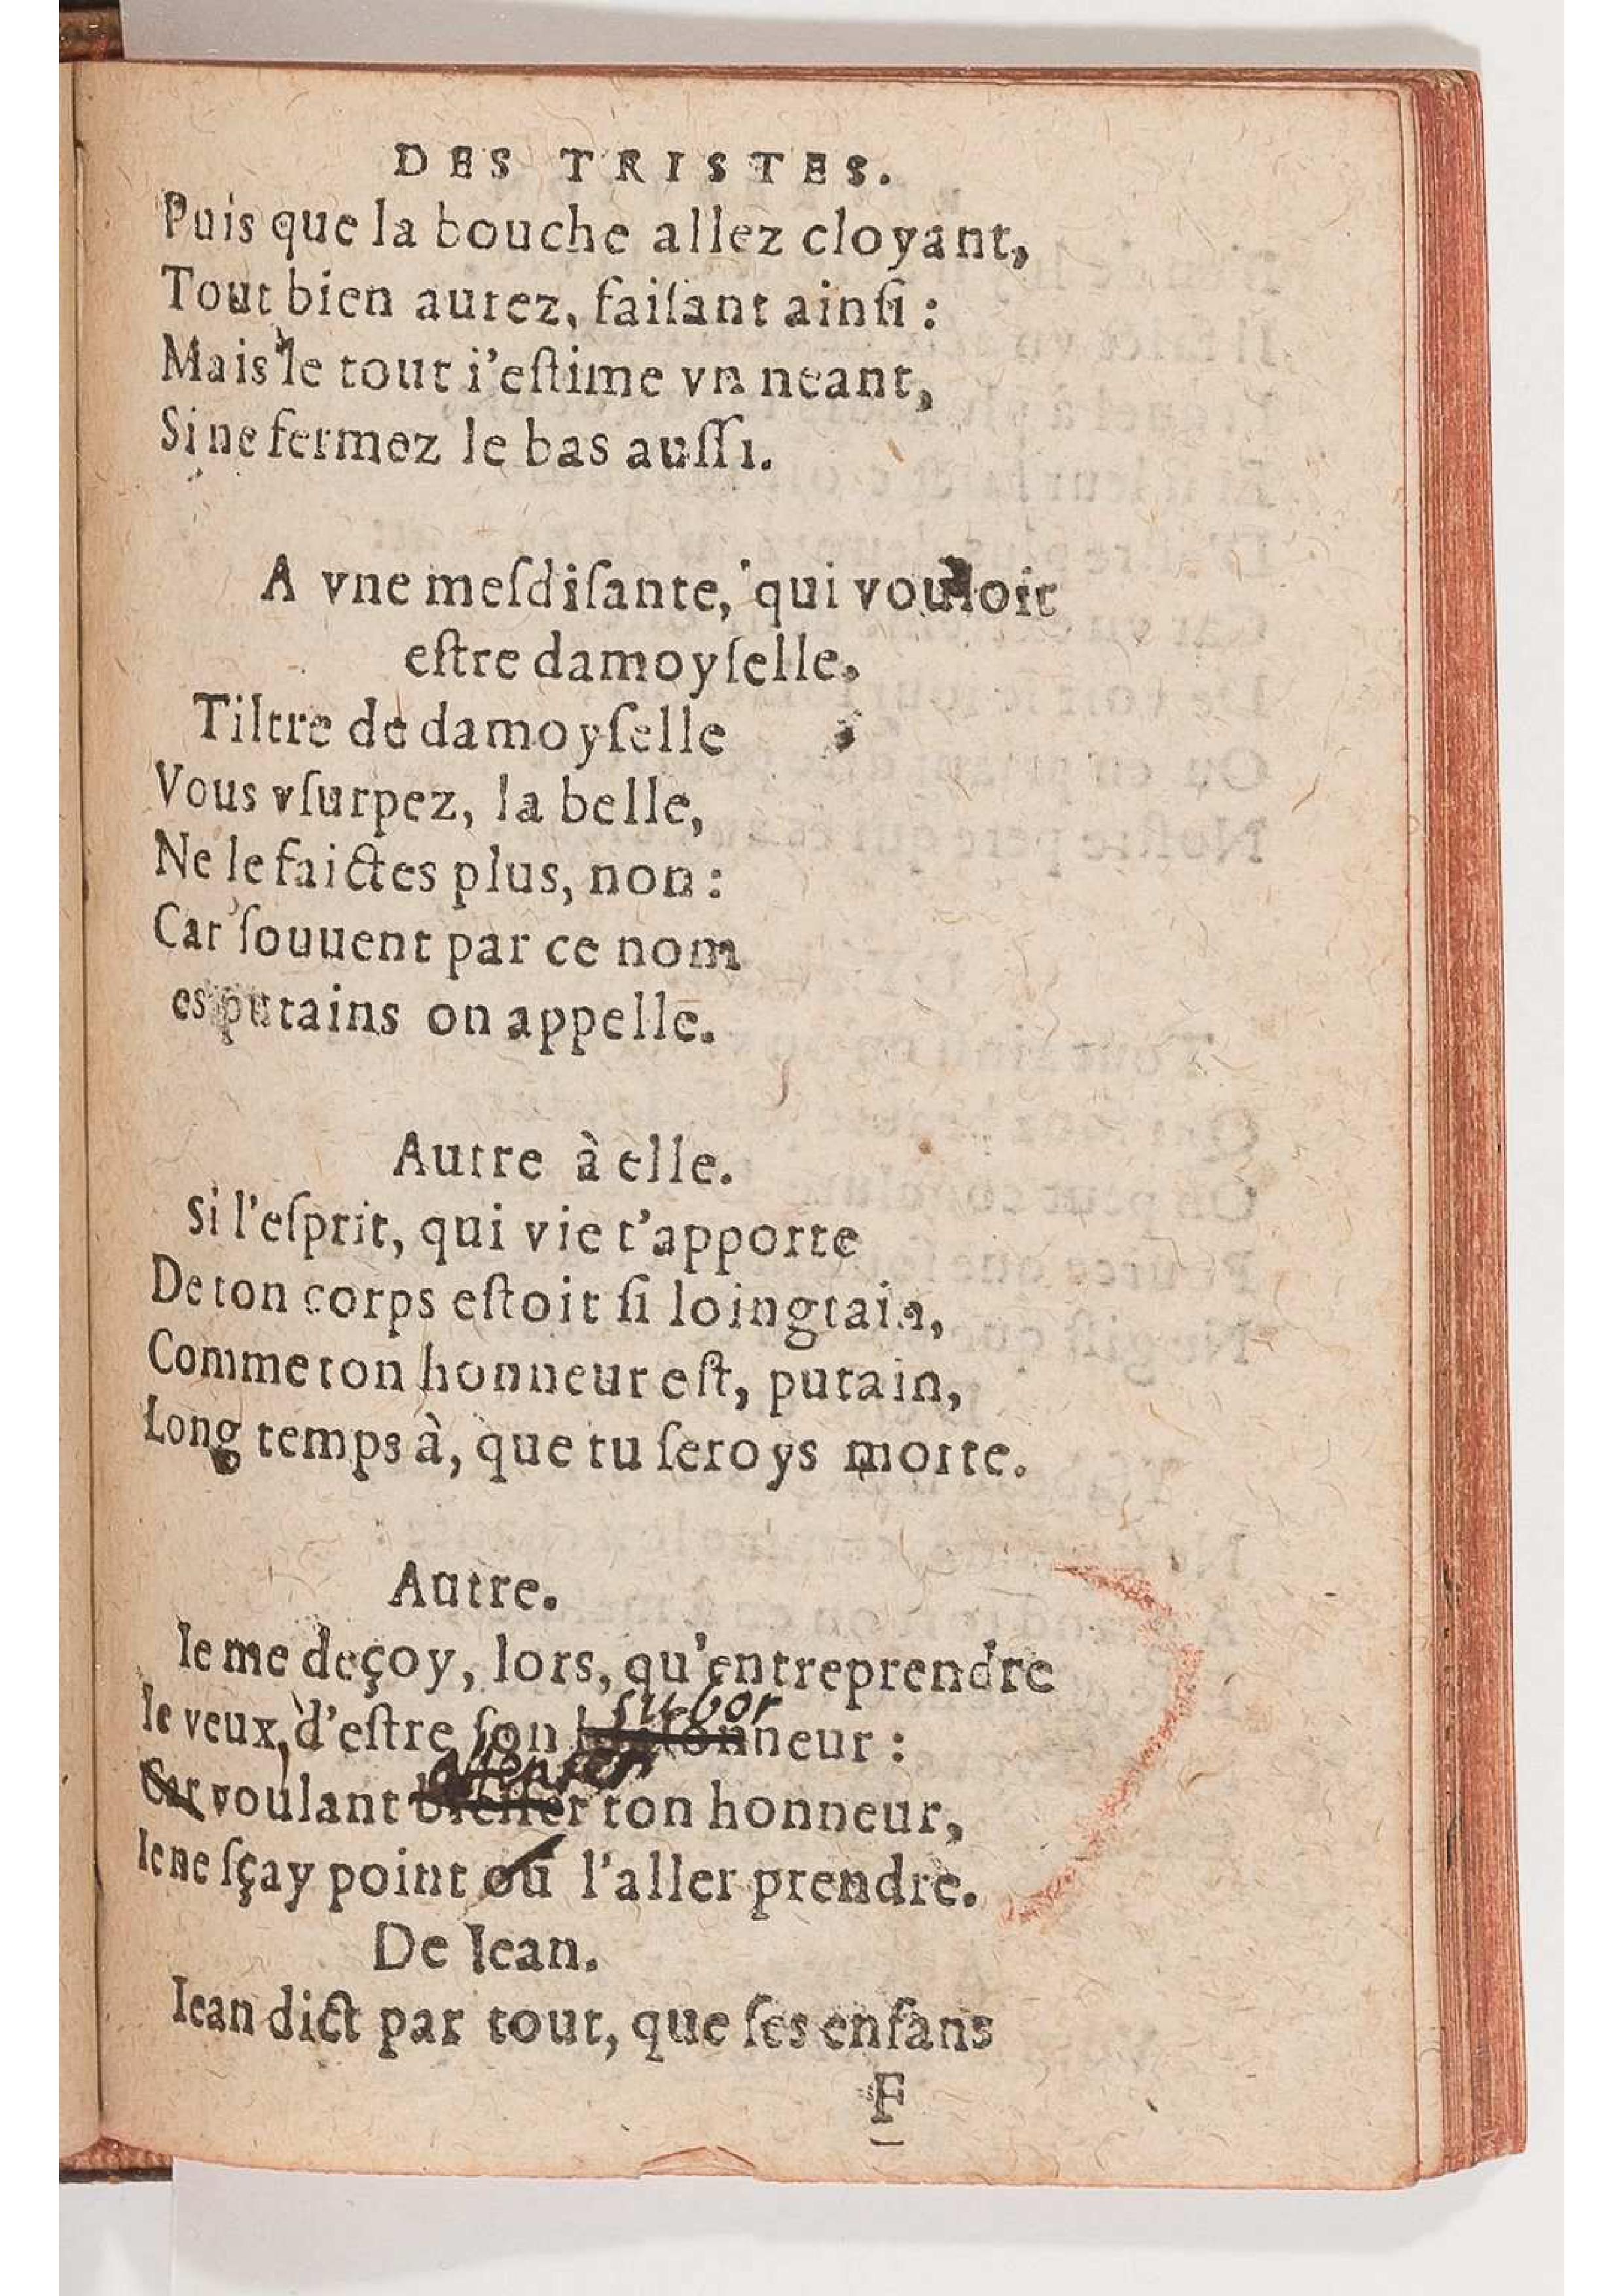 DES TRISTES.
Puis que la bouche allez cloyant,
Tout bien aurez, faiſant ainſi :
Mais le tout i'eſtime vn neant,
Si ne fermez le bas auſſi.
A vne meſdiſante, qui vouloit
eſtre damoyſelle.
Tiltre de damoyſelle
Vous vſurpez, la belle,
Ne le faictes plus, non :
Car ſouuent par ce nom
es putains on appelle.
Autre à elle.
Si l'eſprit, qui vie t'apporte
De ton corps eſtoit ſi loingtain,
Comme ton honneur eſt, putain,
Long temps à, que tu ſeroys morte.
Autre.
Ie me deçoy, lors, qu'entreprendre
subor
Ie veux, d'eſtre ſon neur :
offenser
Car voulant bleſſer ton honneur,
Ie ne ſçay point où l'aller prendre.
De Iean.
Iean dict par tout, que ſes enfans
F